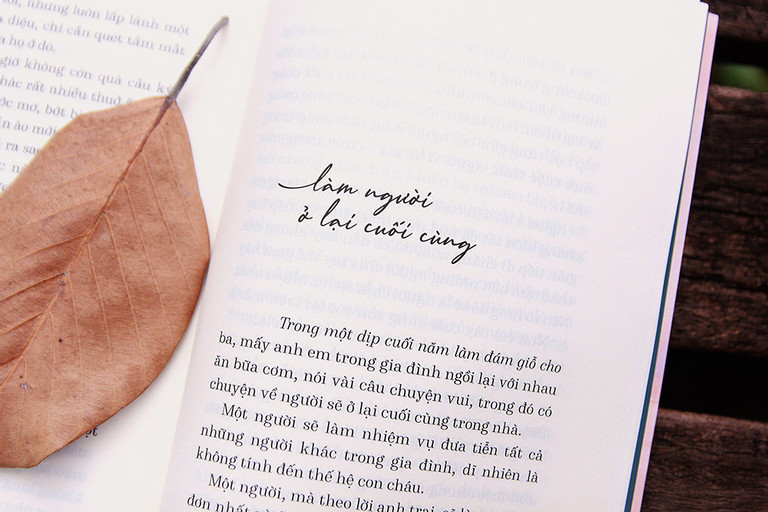 như luôn lấp lánh một
diệu, chỉ cần quét tầm mắt
họ ở đó.
giờ không còn quá cầu kỳ
rất nhiều thuở
mơ, bớt
áo mới
ra
làm người
ở lại cuối cùng
Trong một dịp cuối năm làm đám giỗ cho
ba, mấy anh em trong gia đình ngồi lại với nhau
ăn bữa cơm, nói vài câu chuyện vui, trong đó có
chuyện về người sẽ ở lại cuối cùng trong nhà.
Một người sẽ làm nhiệm vụ đưa tiễn tất cả
những người khác trong gia đình, dĩ nhiên là
không tính đến thế hệ con cháu.
Một người, mà theo lời anh trai, sẽ
đơn nhất